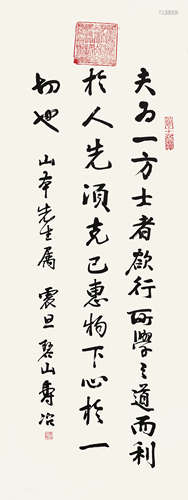 夫为一方士者欲行所學之道而利
於人先須克己惠物下心於一
切也 山本先生属 震旦碧山壽冶